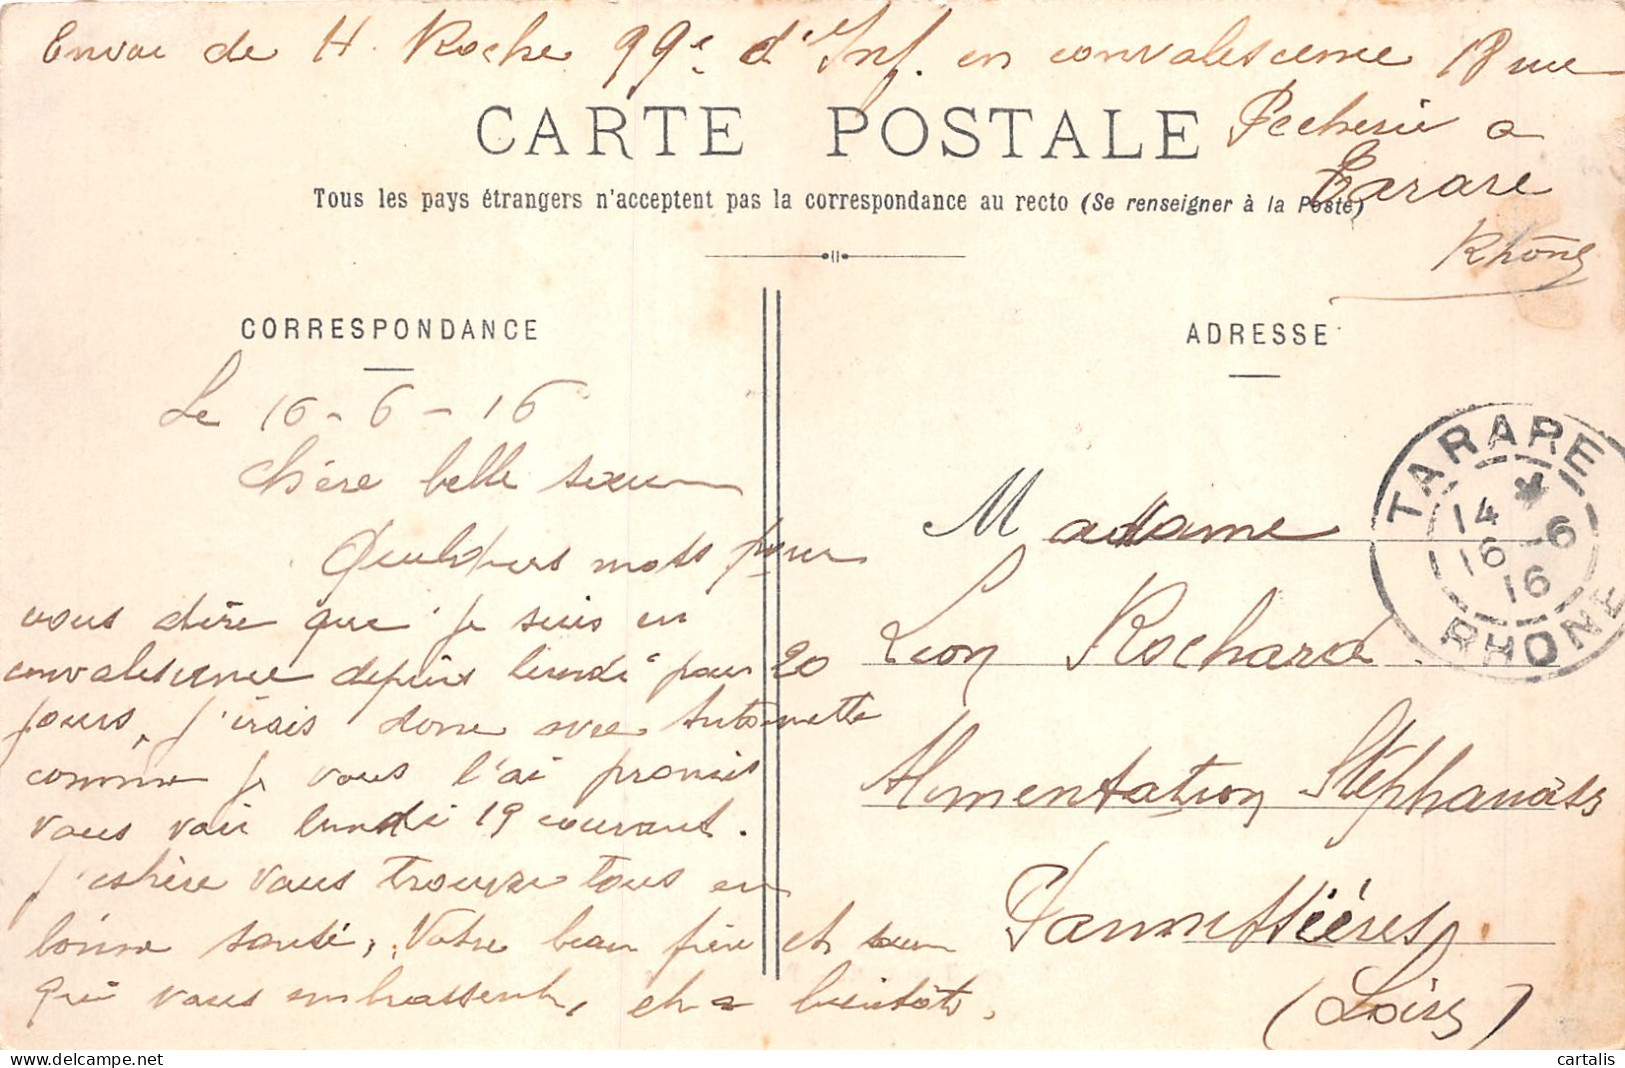 Envoi de H. Roche 99e d'Inf. en convalescence 18 rue
Pecherie a
Tarare
Rhône
CARTE POSTALE
Tous les pays étrangers n'acceptent pas la correspondance au recto (Se renseigner à la Poste)
CORRESPONDANCE
Le 16-6-16
Chère belle sœur
Quelques mots pour
vous dire que je suis en
convalescence depuis lundi pour 20
jours, j'irais donc avec Antoinette
comme je vous l'ai promis
vous voir lundi 19 courant.
j'espère vous trouver tous en
bonne santé, Votre beau frère et sœur
qui vous embrassent, et a bientôt.
ADRESSE
Madame
Leon Rochard
Alimentation Stéphanoise
Pannissières
(Loire)
TARARE
14
16-6
16
RHONE
cartalis